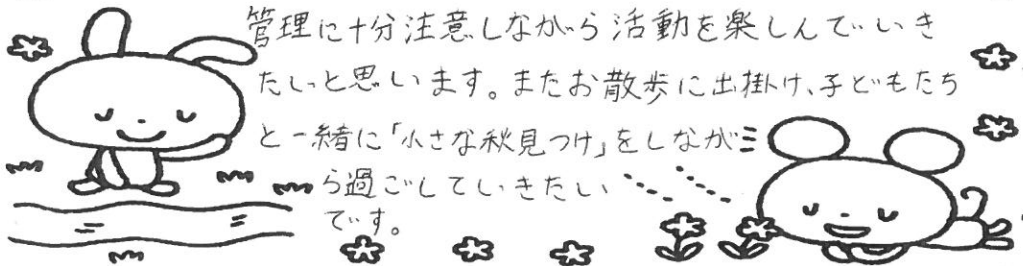 管理に十分注意しながら活動を楽しんでいき
たいと思います。またお散歩に出掛け、子どもたち
と一緒に「小さな秋見つけ」をしなが
ら過ごしていきたい
です。